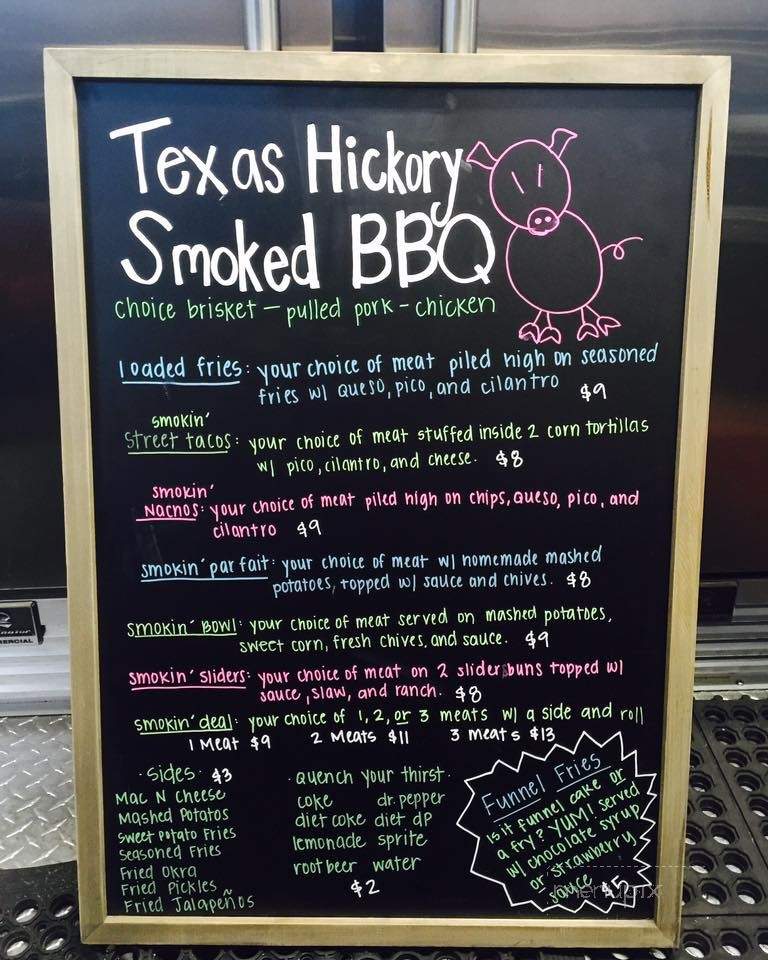 Texas Hickory
Smoked BBQ
choice brisket - pulled pork - chicken
loaded fries: your choice of meat piled high on seasoned
fries w/ queso, pico, and cilantro $9
smokin'
street tacos: your choice of meat stuffed inside 2 corn tortillas
w/ pico, cilantro, and cheese. $8
smokin'
nachos: your choice of meat piled high on chips, queso, pico, and
cilantro $9
smokin' parfait: your choice of meat w/ homemade mashed
potatoes, topped w/ sauce and chives. $8
smokin' bowl: your choice of meat served on mashed potatoes,
sweet corn, fresh chives, and sauce. $9
smokin' sliders: your choice of meat on 2 slider buns topped w/
sauce, slaw, and ranch. $8
smokin' deal: your choice of 1, 2, or 3 meats w/ a side and roll
1 Meat $9 2 Meats $11 3 meats $13
· sides · $3
Mac N Cheese
Mashed Potatos
Sweet Potato Fries
Seasoned Fries
Fried Okra
Fried Pickles
Fried Jalapeños
· quench your thirst ·
coke dr. pepper
diet coke diet dp
lemonade sprite
rootbeer water
$2
Funnel Fries
Is it funnel cake or
a fry? YUM! served
w/ chocolate syrup
or strawberry
sauce $5
menupix